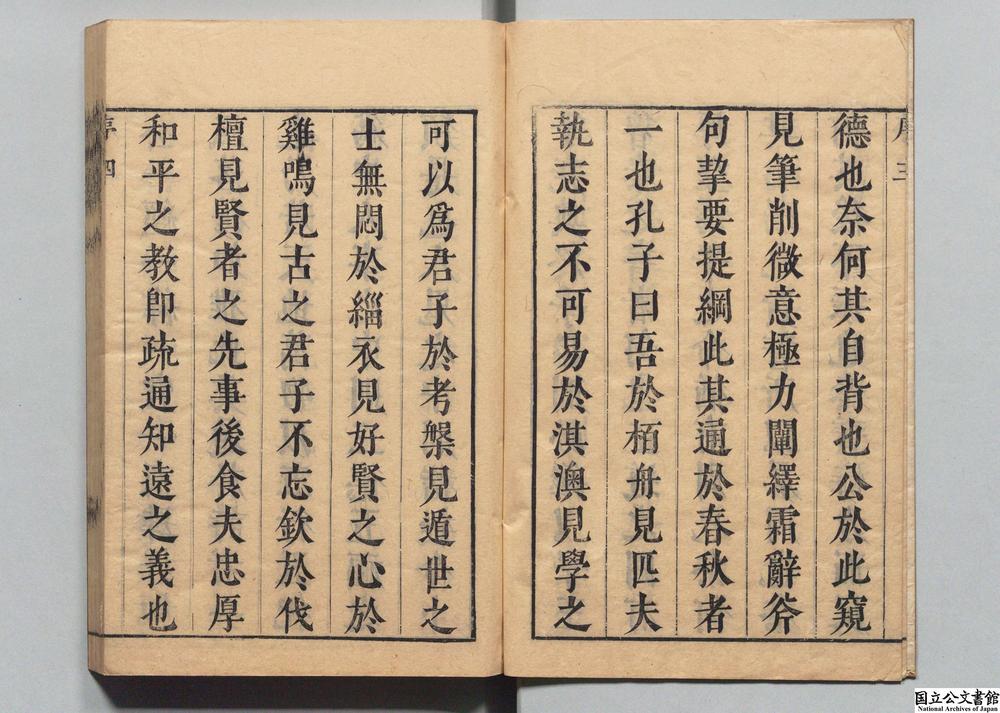 德也奈何其自背也公於此窺
見筆削微意極力闡繹霜辭斧
句挈要提綱此其通於春秋者
一也孔子曰吾於栢舟見匹夫
執志之不可易於淇澳見學之
可以爲君子於考槃見遁世之
士無悶於緇衣見好賢之心於
雞鳴見古之君子不忘欽於伐
檀見賢者之先事後食夫忠厚
和平之教卽疏通知遠之義也
序四
国立公文書館
National Archives of Japan